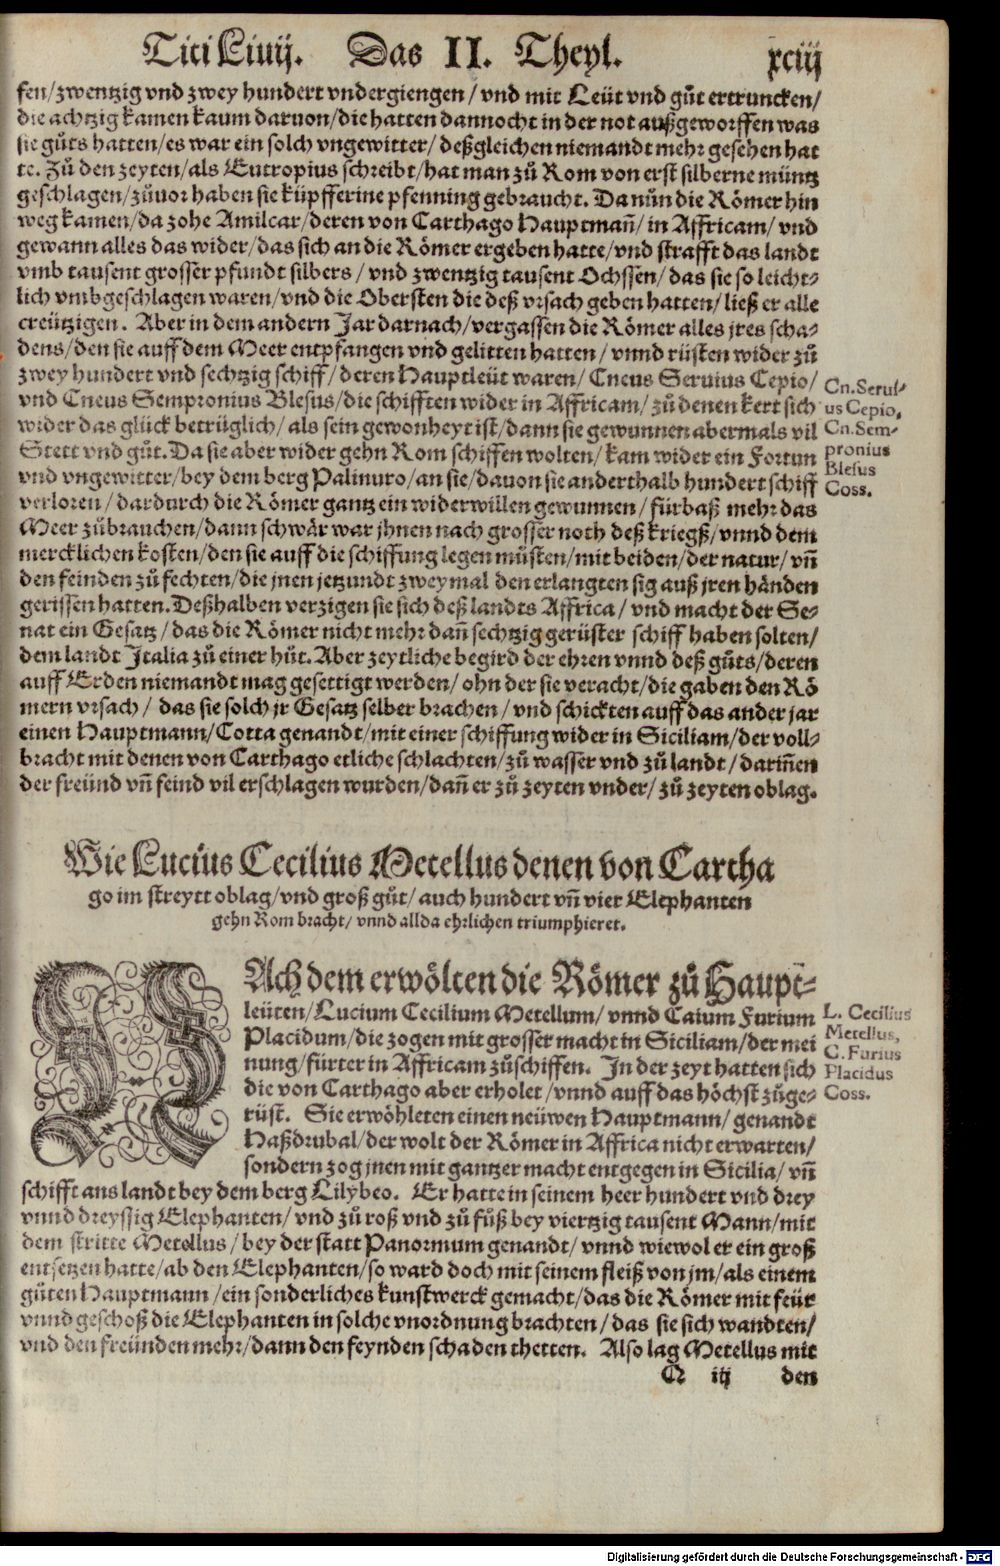 Titi Liuij. Das II. Theyl. xciij
fen/zwentzig vnd zwey hundert vndergiengen/vnd mit Leüt vnd gůt ertruncken/
die achtzig kamen kaum daruon/die hatten dannocht in der not außgeworffen was
sie gůts hatten/es war ein solch vngewitter/deßgleichen niemandt mehr gesehen hat
te. Zů den zeyten/als Eutropius schreibt/hat man zů Rom von erst silberne müntz
geschlagen/zůuor haben sie küpfferine pfenning gebraucht. Da nůn die Römer hin
weg kamen/da zohe Amilcar/deren von Carthago Hauptmañ/in Affricam/vnd
gewann alles das wider/das sich an die Römer ergeben hatte/vnd strafft das landt
vmb tausent grosser pfundt silbers/vnd zwentzig tausent Ochssen/das sie so leicht-
lich vmbgeschlagen waren/vnd die Obersten die deß vrsach geben hatten/ließ er alle
creützigen. Aber in dem andern Jar darnach/vergassen die Römer alles jres scha-
dens/den sie auff dem Meer entpfangen vnd gelitten hatten/vnnd rüsten wider zů
zwey hundert vnd sechtzig schiff/deren Hauptleüt waren/Cneus Seruius Cepio/
vnd Cneus Sempronius Blesus/die schifften wider in Affricam/zů denen kert sich
wider das glück betrüglich/als sein gewonheyt ist/dann sie gewunnen abermals vil
Stett vnd gůt. Da sie aber wider gehn Rom schiffen wolten/kam wider ein Fortun
vnd vngewitter/bey dem berg Palinuro/an sie/dauon sie anderthalb hundert schiff
verloren/dardurch die Römer gantz ein widerwillen gewunnen/fürbaß mehr das
Meer zůbrauchen/dann schwär war jhnen nach grosser noth deß kriegß/vnnd dem
mercklichen kosten/den sie auff die schiffung legen můsten/mit beiden/der natur/vñ
den feinden zů fechten/die jnen jetzundt zweymal den erlangten sig auß jren händen
gerissen hatten. Deßhalben verzigen sie sich deß landts Affrica/vnd macht der Se-
nat ein Gesatz/das die Römer nicht mehr dañ sechtzig gerüster schiff haben solten/
dem landt Italia zů einer hůt. Aber zeytliche begird der ehren vnnd deß gůts/deren
auff Erden niemandt mag gesettigt werden/ohn der sie veracht/die gaben den Rö
mern vrsach/das sie solch jr Gesatz selber brachen/vnd schickten auff das ander jar
einen Hauptmann/Cotta genandt/mit einer schiffung wider in Siciliam/der voll-
bracht mit denen von Carthago etliche schlachten/zů wasser vnd zů landt/dariñen
der freünd vñ feind vil erschlagen wurden/dañ er zů zeyten vnder/zů zeyten oblag.
Cn. Serui-
us Cepio,
Cn. Sem-
pronius
Blesus
Coss.
Wie Lucius Cecilius Metellus denen von Cartha
go im streytt oblag/vnd groß gůt/auch hundert vñ vier Elephanten
gehn Rom bracht/vnnd allda ehrlichen triumphieret.
NAch dem erwölten die Römer zů Haupt-
leüten/Lucium Cecilium Metellum/vnnd Caium Furium
Placidum/die zogen mit grosser macht in Siciliam/der mei
nung/fürter in Affricam zůschiffen. In der zeyt hatten sich
die von Carthago aber erholet/vnnd auff das höchst zůge-
rüst. Sie erwöhleten einen neüwen Hauptmann/genandt
Haßdrubal/der wolt der Römer in Affrica nicht erwarten/
sondern zog jnen mit gantzer macht entgegen in Sicilia/vñ
schifft ans landt bey dem berg Lilybeo. Er hatte in seinem heer hundert vnd drey
vnnd dreyssig Elephanten/vnd zů roß vnd zů fůß bey viertzig tausent Mann/mit
dem stritte Metellus/bey der statt Panormum genandt/vnnd wiewol er ein groß
entsetzen hatte/ab den Elephanten/so ward doch mit seinem fleiß von jm/als einem
gůten Hauptmann/ein sonderliches kunstwerck gemacht/das die Römer mit feür
vnnd geschoß die Elephanten in solche vnordnung brachten/das sie sich wandten/
vnd den freünden mehr/dann den feynden schaden thetten. Also lag Metellus mit
L. Cecilius
Metellus,
C. Furius
Placidus
Coss.
Q iij den
Digitalisierung gefördert durch die Deutsche Forschungsgemeinschaft - DFG